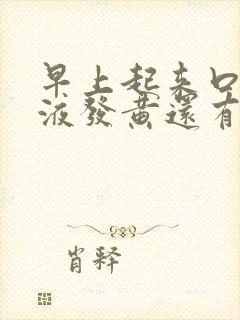 早上起来口
液發黄還有
肖釋